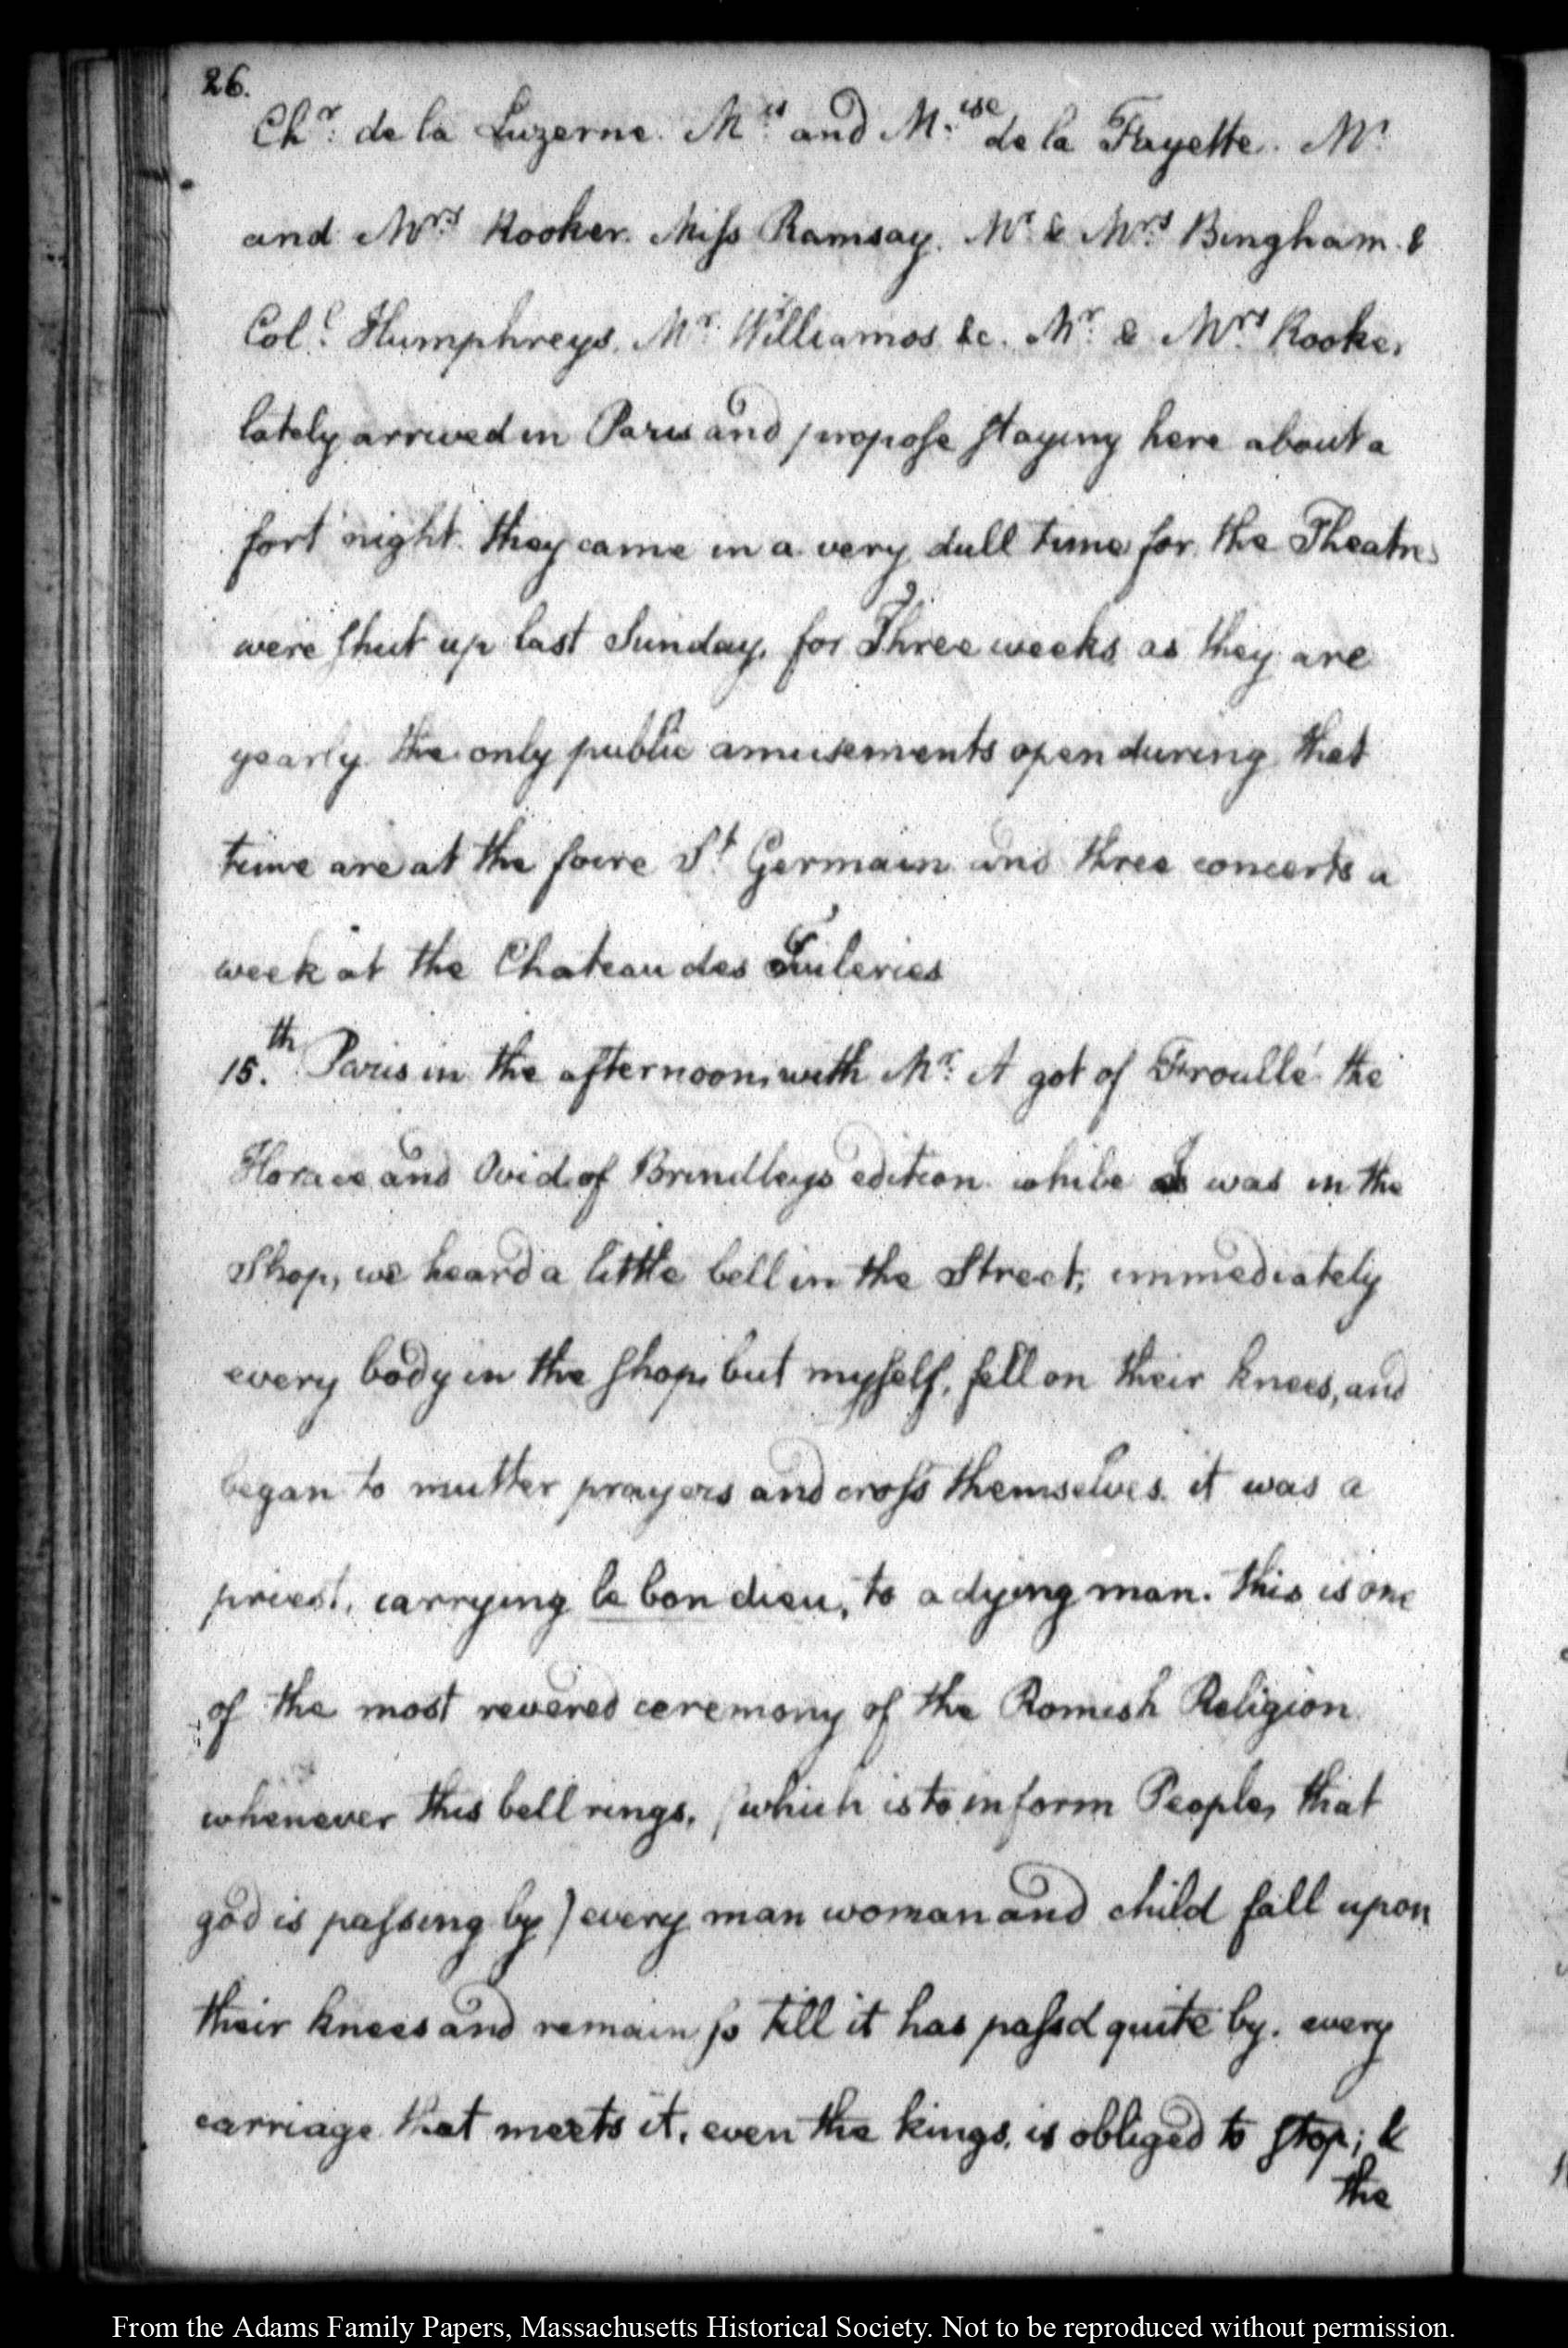 26.
Chr. de la Luzerne. Mis. and M.ise de la Fayette. Mr.
and Mrs. Rooker. Miss Ramsay. Mr. & Mrs. Bingham. &
Coll. Humphreys. Mr. Williamos &c. Mr. & Mrs. Rooker
lately arrived in Paris and propose staying here about a
fort night. they came in a very dull time for the Theatres
were shut up last Sunday, for Three weeks as they are
yearly the only public amusements open during that
time are at the foire St. Germain and three concerts a
week at the Chateau des Tuileries
15.th Paris in the afternoon, with Mr. A got of Froullé the
Horace and Ovid of Brindleys edition. while I was in the
Shop, we heard a little bell in the Street, immediately
every body in the shop, but myself, fell on their knees, and
began to mutter prayers and cross themselves. it was a
priest, carrying le bon dieu, to a dying man. this is one
of the most revered ceremony of the Romish Religion
whenever this bell rings, (which is to inform People, that
god is passing by) every man woman and child fall upon
their knees and remain so till it has passd quite by. every
carriage that meets it, even the kings, is obliged to stop; &
the
From the Adams Family Papers, Massachusetts Historical Society. Not to be reproduced without permission.